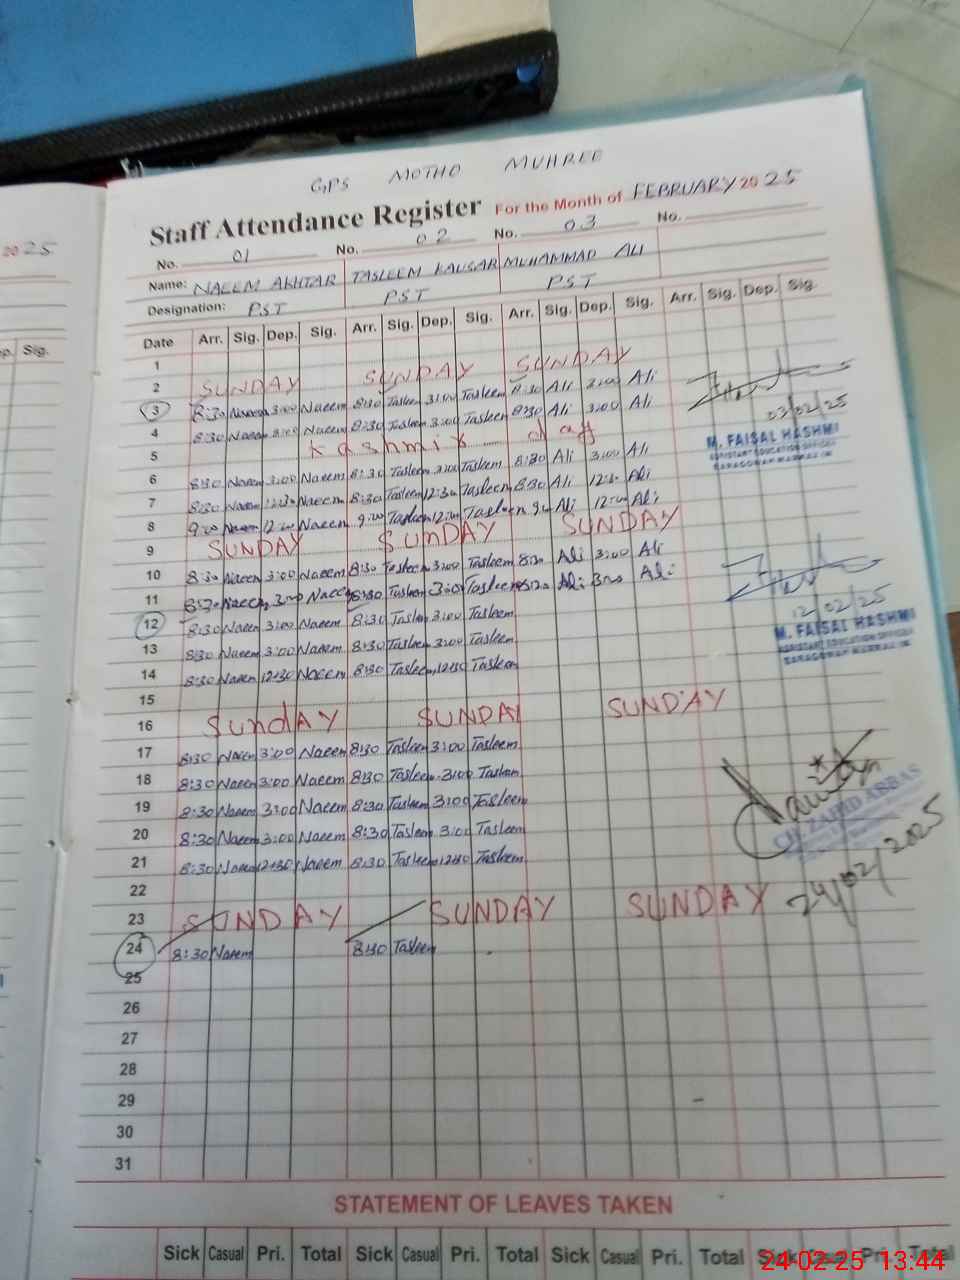 GPS MOTHO MUHREE
Staff Attendance Register For the Month of FEBRUARY 2025
2025
No. 01 No. 02 No. 03 No.
Name: NAEEM AKHTAR TASLEEM KAUSAR MUHAMMAD ALI
Designation: PST PST PST
Date Arr. Sig. Dep. Sig. Arr. Sig. Dep. Sig. Arr. Sig. Dep. Sig. Arr. Sig. Dep. Sig.
Sig.
1
2 SUNDAY SUNDAY SUNDAY
3 8:30 Naeem 3:00 Naeem 8:30 Tasleem 3:00 Tasleem 8:30 Ali 3:00 Ali
4 8:30 Naeem 3:00 Naeem 8:30 Tasleem 3:00 Tasleem 8:30 Ali 3:00 Ali
03/02/25
M. FAISAL HASHMI
ASSISTANT EDUCATION OFFICER
5 Kashmir day
6 8:30 Naeem 3:00 Naeem 8:30 Tasleem 3:00 Tasleem 8:30 Ali 3:00 Ali
7 8:30 Naeem 12:30 Naeem 8:30 Tasleem 12:30 Tasleem 8:30 Ali 12:30 Ali
8 9:00 Naeem 12:00 Naeem 9:00 Tasleem 12:00 Tasleem 9:00 Ali 12:00 Ali
9 SUNDAY SUNDAY SUNDAY
10 8:30 Naeem 3:00 Naeem 8:30 Tasleem 3:00 Tasleem 8:30 Ali 3:00 Ali
11 8:30 Naeem 3:00 Naeem 8:30 Tasleem 3:00 Tasleem 8:30 Ali 3:00 Ali
12 8:30 Naeem 3:00 Naeem 8:30 Tasleem 3:00 Tasleem
12/02/25
M. FAISAL HASHMI
ASSISTANT EDUCATION OFFICER
13 8:30 Naeem 3:00 Naeem 8:30 Tasleem 3:00 Tasleem
14 8:30 Naeem 12:30 Naeem 8:30 Tasleem 12:30 Tasleem
15
16 SundAY SUNDAY SUNDAY
17 8:30 Naeem 3:00 Naeem 8:30 Tasleem 3:00 Tasleem
18 8:30 Naeem 3:00 Naeem 8:30 Tasleem 3:00 Tasleem
19 8:30 Naeem 3:00 Naeem 8:30 Tasleem 3:00 Tasleem
CH. ZAHID ABBAS
20 8:30 Naeem 3:00 Naeem 8:30 Tasleem 3:00 Tasleem
21 8:30 Naeem 12:30 Naeem 8:30 Tasleem 12:30 Tasleem
24/02/2025
22
23 SUNDAY SUNDAY SUNDAY
24 8:30 Naeem 8:30 Tasleem
25
26
27
28
29
30
31
STATEMENT OF LEAVES TAKEN
Sick Casual Pri. Total Sick Casual Pri. Total Sick Casual Pri. Total Sick Casual Pri. Total
24-02-25 13:44